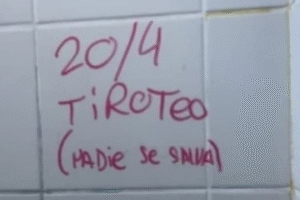 20/4
TiROTEO
(NADiE Se SALVA)